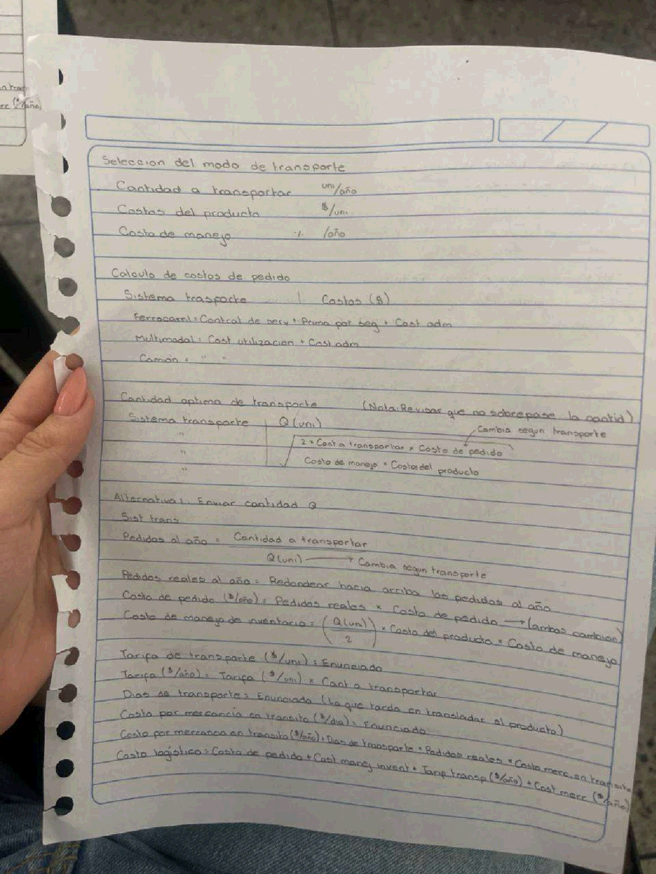 Seleccion del modo de transporte
Cantidad a transportar uni/año
Costos del producto $/uni
Costo de manejo % /año
Calculo de costos de pedido
Sistema trasporte | Costos ($)
Ferrocarril = Control de serv + Prima por seg + Cost adm
Multimodal = Cost utilizacion + Cost adm
Camión = " "
Cantidad optima de transporte (Nota: Revisar que no sobrepase la cantid)
Sistema transporte | Q (uni) Cambia segun transporte
" √ 2 * Cant a transportar * Costo de pedido
" Costo de manejo * Costo del producto
"
Alternativa 1. Enviar cantidad Q
Sist trans
Pedidos al año = Cantidad a transportar
Q (uni) → Cambia segun transporte
Pedidos reales al año = Redondear hacia arriba los pedidos al año
Costo de pedido ($/año) = Pedidos reales * Costo de pedido → (ambos cambian)
Costo de manejo de inventario = (Q (uni) / 2) * Costo del producto * Costo de manejo
Tarifa de transporte ($/uni) = Enunciado
Tarifa ($/año) = Tarifa ($/uni) * Cant a transportar
Dias de transporte = Enunciado (Lo que tarda en transladar el producto)
Costo por mercancia en transito ($/dia) = Enunciado
Costo por mercancia en transito ($/año) = Dias de transporte * Pedidos reales * Costo merc en transito
Costo logistico = Costo de pedido + Cost manej invent + Tarifa transp ($/año) + Cost merc ($/año)